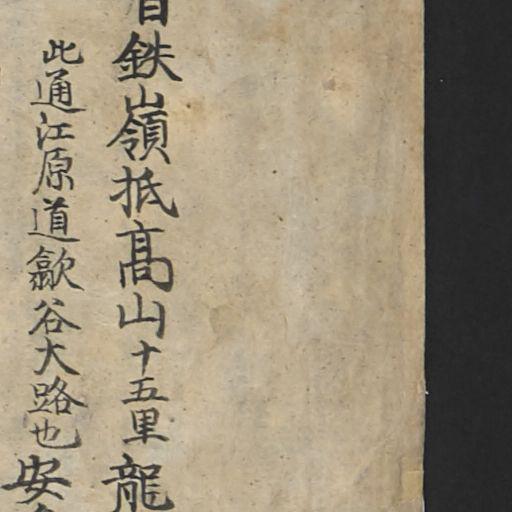 自鉄嶺抵高山十五里龍
此通江原道歙谷大路也安